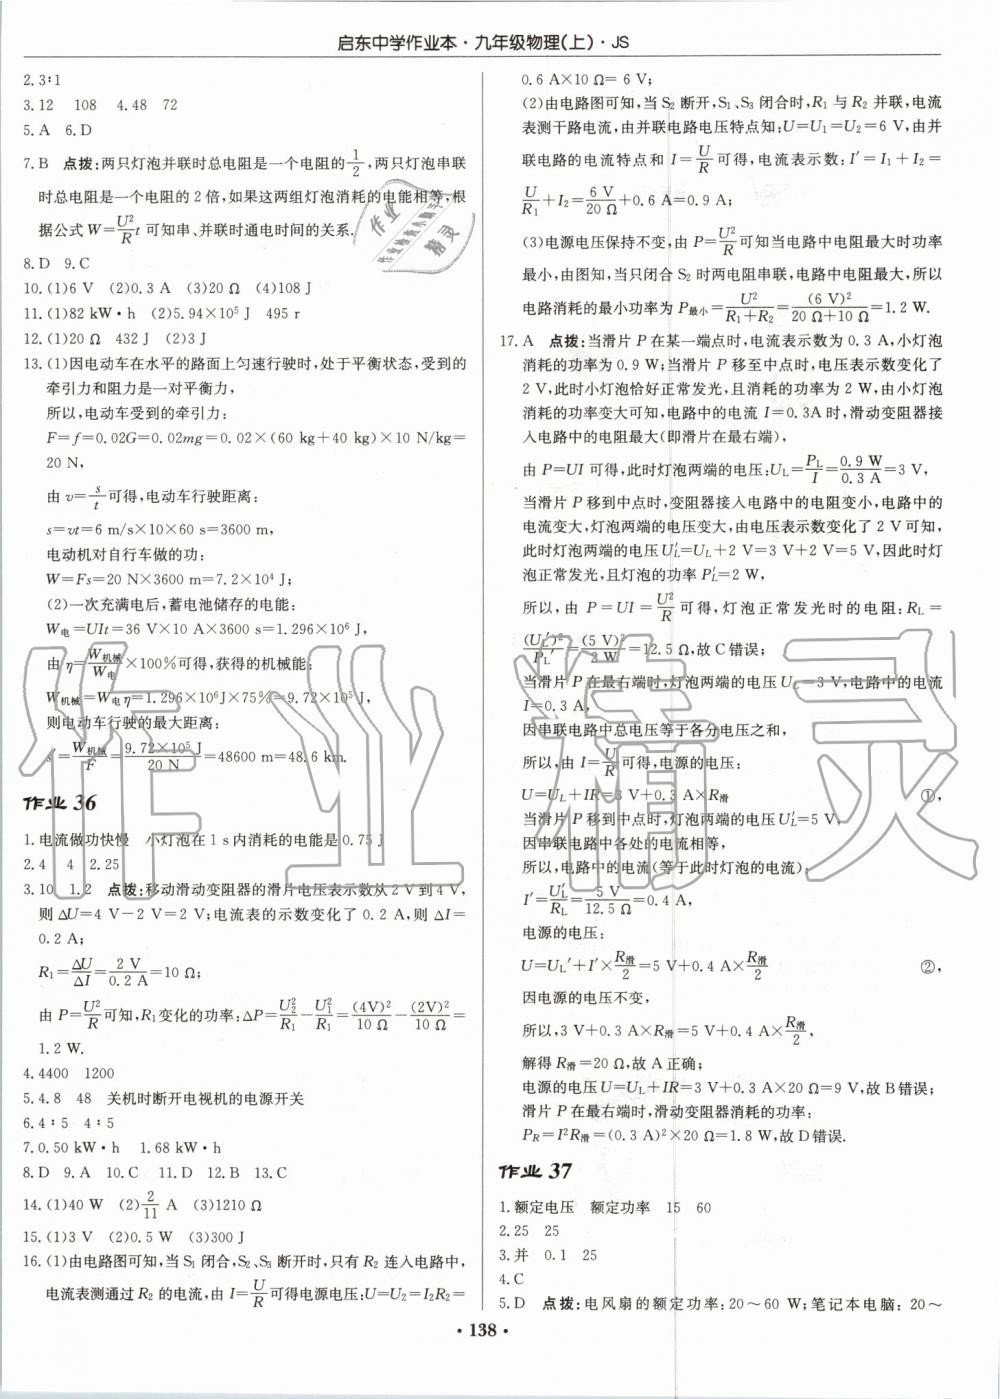 启东中学作业本·九年级物理(上)·JS
2.3∶1
3.12 108 4.48 72
5.A 6.D
7.B 点拨:两只灯泡并联时总电阻是一个电阻的1/2,两只灯泡串联
时总电阻是一个电阻的2倍,如果这两组灯泡消耗的电能相等,根
据公式W=U²/R t可知串、并联时通电时间的关系.
8.D 9.C
10.(1)6 V (2)0.3 A (3)20 Ω (4)108 J
11.(1)82 kW·h (2)5.94×10⁵ J 495 r
12.(1)20 Ω 432 J (2)3 J
13.(1)因电动车在水平的路面上匀速行驶时,处于平衡状态,受到的
牵引力和阻力是一对平衡力,
所以,电动车受到的牵引力:
F=f=0.02G=0.02mg=0.02×(60 kg+40 kg)×10 N/kg=
20 N,
由v=s/t可得,电动车行驶距离:
s=vt=6 m/s×10×60 s=3600 m,
电动机对自行车做的功:
W=Fs=20 N×3600 m=7.2×10⁴ J;
(2)一次充满电后,蓄电池储存的电能:
W电=UIt=36 V×10 A×3600 s=1.296×10⁶ J,
由η=W机械/W电×100%可得,获得的机械能:
W机械=W电η=1.296×10⁶J×75%=9.72×10⁵ J,
则电动车行驶的最大距离:
s′=W机械/F=9.72×10⁵ J/20 N=48600 m=48.6 km.
作业 36
1.电流做功快慢 小灯泡在1 s内消耗的电能是0.75 J
2.4 4 2.25
3.10 1.2 点拨:移动滑动变阻器的滑片电压表示数从2 V到4 V,
则ΔU=4 V-2 V=2 V;电流表的示数变化了0.2 A,则ΔI=
0.2 A;
R₁=ΔU/ΔI=2 V/0.2 A=10 Ω;
由P=U²/R可知,R₁变化的功率:ΔP=U₂²/R₁-U₁²/R₁=(4V)²/10 Ω-(2V)²/10 Ω=
1.2 W.
4.4400 1200
5.4.8 48 关机时断开电视机的电源开关
6.4∶5 4∶5
7.0.50 kW·h 1.68 kW·h
8.D 9.A 10.C 11.D 12.B 13.C
14.(1)40 W (2)2/11 A (3)1210 Ω
15.(1)3 V (2)0.5 W (3)300 J
16.(1)由电路图可知,当S₁闭合,S₂、S₃断开时,只有R₂连入电路中,
电流表测通过R₂的电流,由I=U/R可得电源电压:U=U₂=I₂R₂=
0.6 A×10 Ω=6 V;
(2)由电路图可知,当S₂断开,S₁、S₃闭合时,R₁与R₂并联,电流
表测干路电流,由并联电路电压特点知:U=U₁=U₂=6 V,由并
联电路的电流特点和I=U/R可得,电流表示数:I′=I₁+I₂=
U/R₁+I₂=6 V/20 Ω+0.6 A=0.9 A;
(3)电源电压保持不变,由P=U²/R可知当电路中电阻最大时功率
最小,由图知,当只闭合S₂时两电阻串联,电路中电阻最大,所以
电路消耗的最小功率为P最小=U²/R₁+R₂=(6 V)²/20 Ω+10 Ω=1.2 W.
17.A 点拨:当滑片P在某一端点时,电流表示数为0.3 A,小灯泡
消耗的功率为0.9 W;当滑片P移至中点时,电压表示数变化了
2 V,此时小灯泡恰好正常发光,且消耗的功率为2 W,由小灯泡
消耗的功率变大可知,电路中的电流I=0.3A时,滑动变阻器接
入电路中的电阻最大(即滑片在最右端),
由P=UI可得,此时灯泡两端的电压:UL=PL/I=0.9 W/0.3 A=3 V,
当滑片P移到中点时,变阻器接入电路中的电阻变小,电路中的
电流变大,灯泡两端的电压变大,由电压表示数变化了2 V可知,
此时灯泡两端的电压U′L=UL+2 V=3 V+2 V=5 V,因此时灯
泡正常发光,且灯泡的功率P′L=2 W,
所以,由P=UI=U²/R可得,灯泡正常发光时的电阻:RL=
(UL′)²/PL′=(5 V)²/2 W=12.5 Ω,故C错误;
当滑片P在最右端时,灯泡两端的电压UL=3 V,电路中的电流
I=0.3 A,
因串联电路中总电压等于各分电压之和,
所以,由I=U/R可得,电源的电压:
U=UL+IR=3 V+0.3 A×R滑 ①,
当滑片P移到中点时,灯泡两端的电压U′L=5 V,
因串联电路中各处的电流相等,
所以,电路中的电流(等于此时灯泡的电流):
I′=U′L/RL=5 V/12.5 Ω=0.4 A,
电源的电压:
U=UL′+I′×R滑/2=5 V+0.4 A×R滑/2 ②,
因电源的电压不变,
所以,3 V+0.3 A×R滑=5 V+0.4 A×R滑/2,
解得R滑=20 Ω,故A正确;
电源的电压U=UL+IR=3 V+0.3 A×20 Ω=9 V,故B错误;
滑片P在最右端时,滑动变阻器消耗的功率:
PR=I²R滑=(0.3 A)²×20 Ω=1.8 W,故D错误.
作业 37
1.额定电压 额定功率 15 60
2.25 25
3.并 0.1 25
4.C
5.D 点拨:电风扇的额定功率:20～60 W;笔记本电脑:20～
·138·
作业精灵